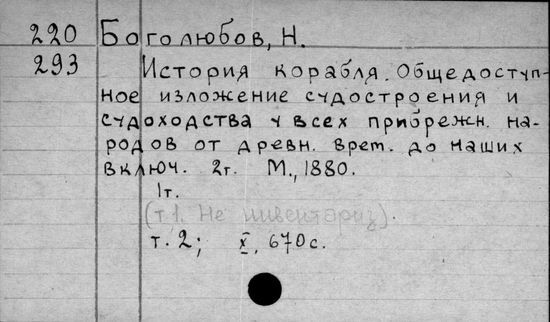 220 Боголюбов, Н.
293 История корабля. Общедоступ-
ное изложение судостроения и
судоходства у всех прибрежн. на-
родов от древн. врем. до наших
включ. 2т. М., 1880.
1т.
(т 1. Не инвентариз).
т. 2; X, 670с.